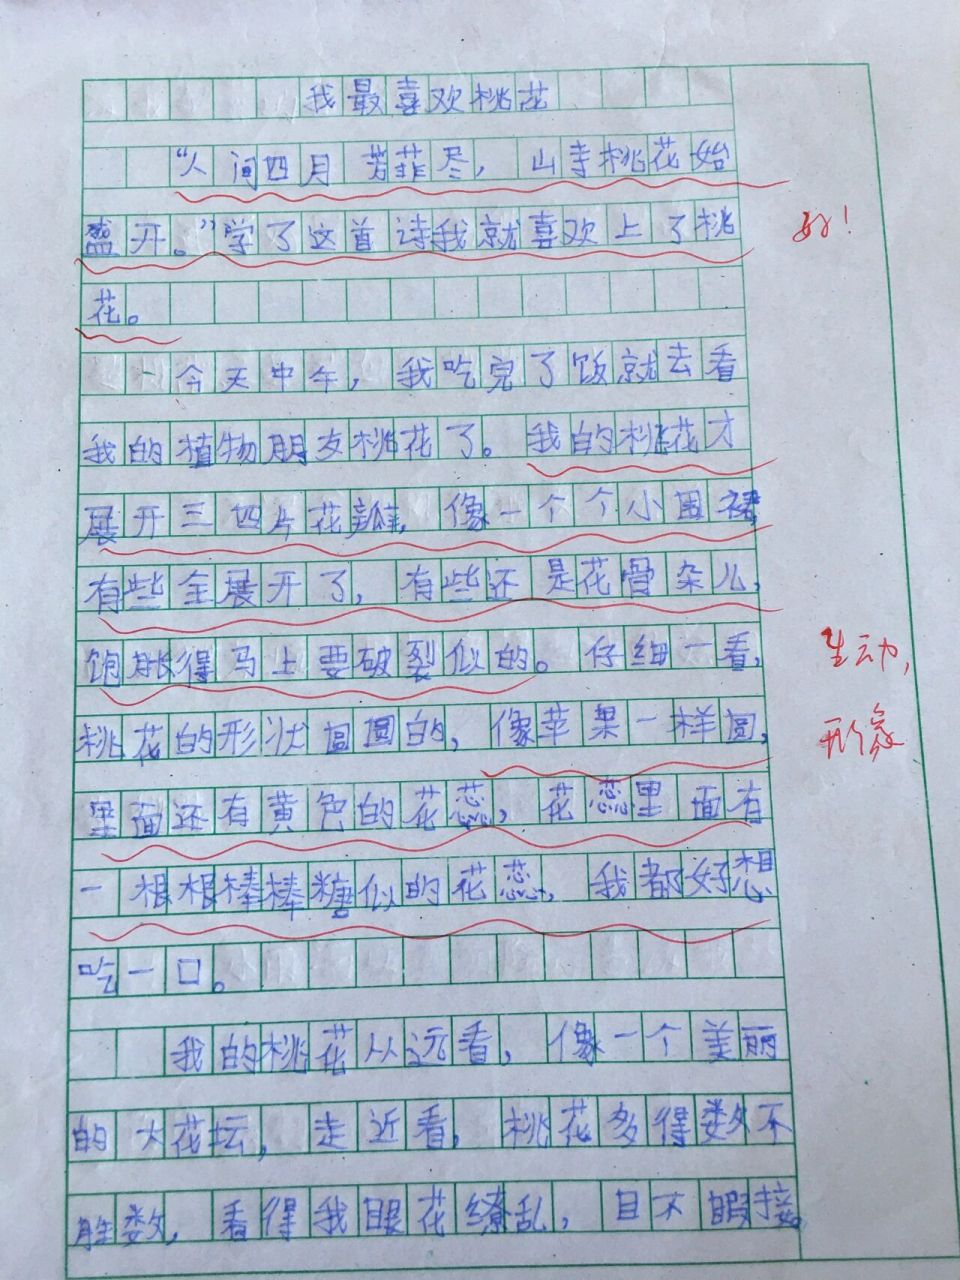 我最喜欢桃花
“人间四月芳菲尽，山寺桃花始
盛开。”学了这首诗我就喜欢上了桃
花。
好！
今天中午，我吃完了饭就去看
我的植物朋友桃花了。我的桃花才
展开三四片花瓣，像一个个小围裙，
有些全展开了，有些还是花骨朵儿，
饱胀得马上要破裂似的。仔细一看，
生动，
桃花的形状圆圆的，像苹果一样圆，
形象
里面还有黄色的花蕊，花蕊里面有
一根根棒棒糖似的花蕊，我都好想
吃一口。
我的桃花从远看，像一个美丽
的大花坛，走近看，桃花多得数不
胜数，看得我眼花缭乱，目不暇接